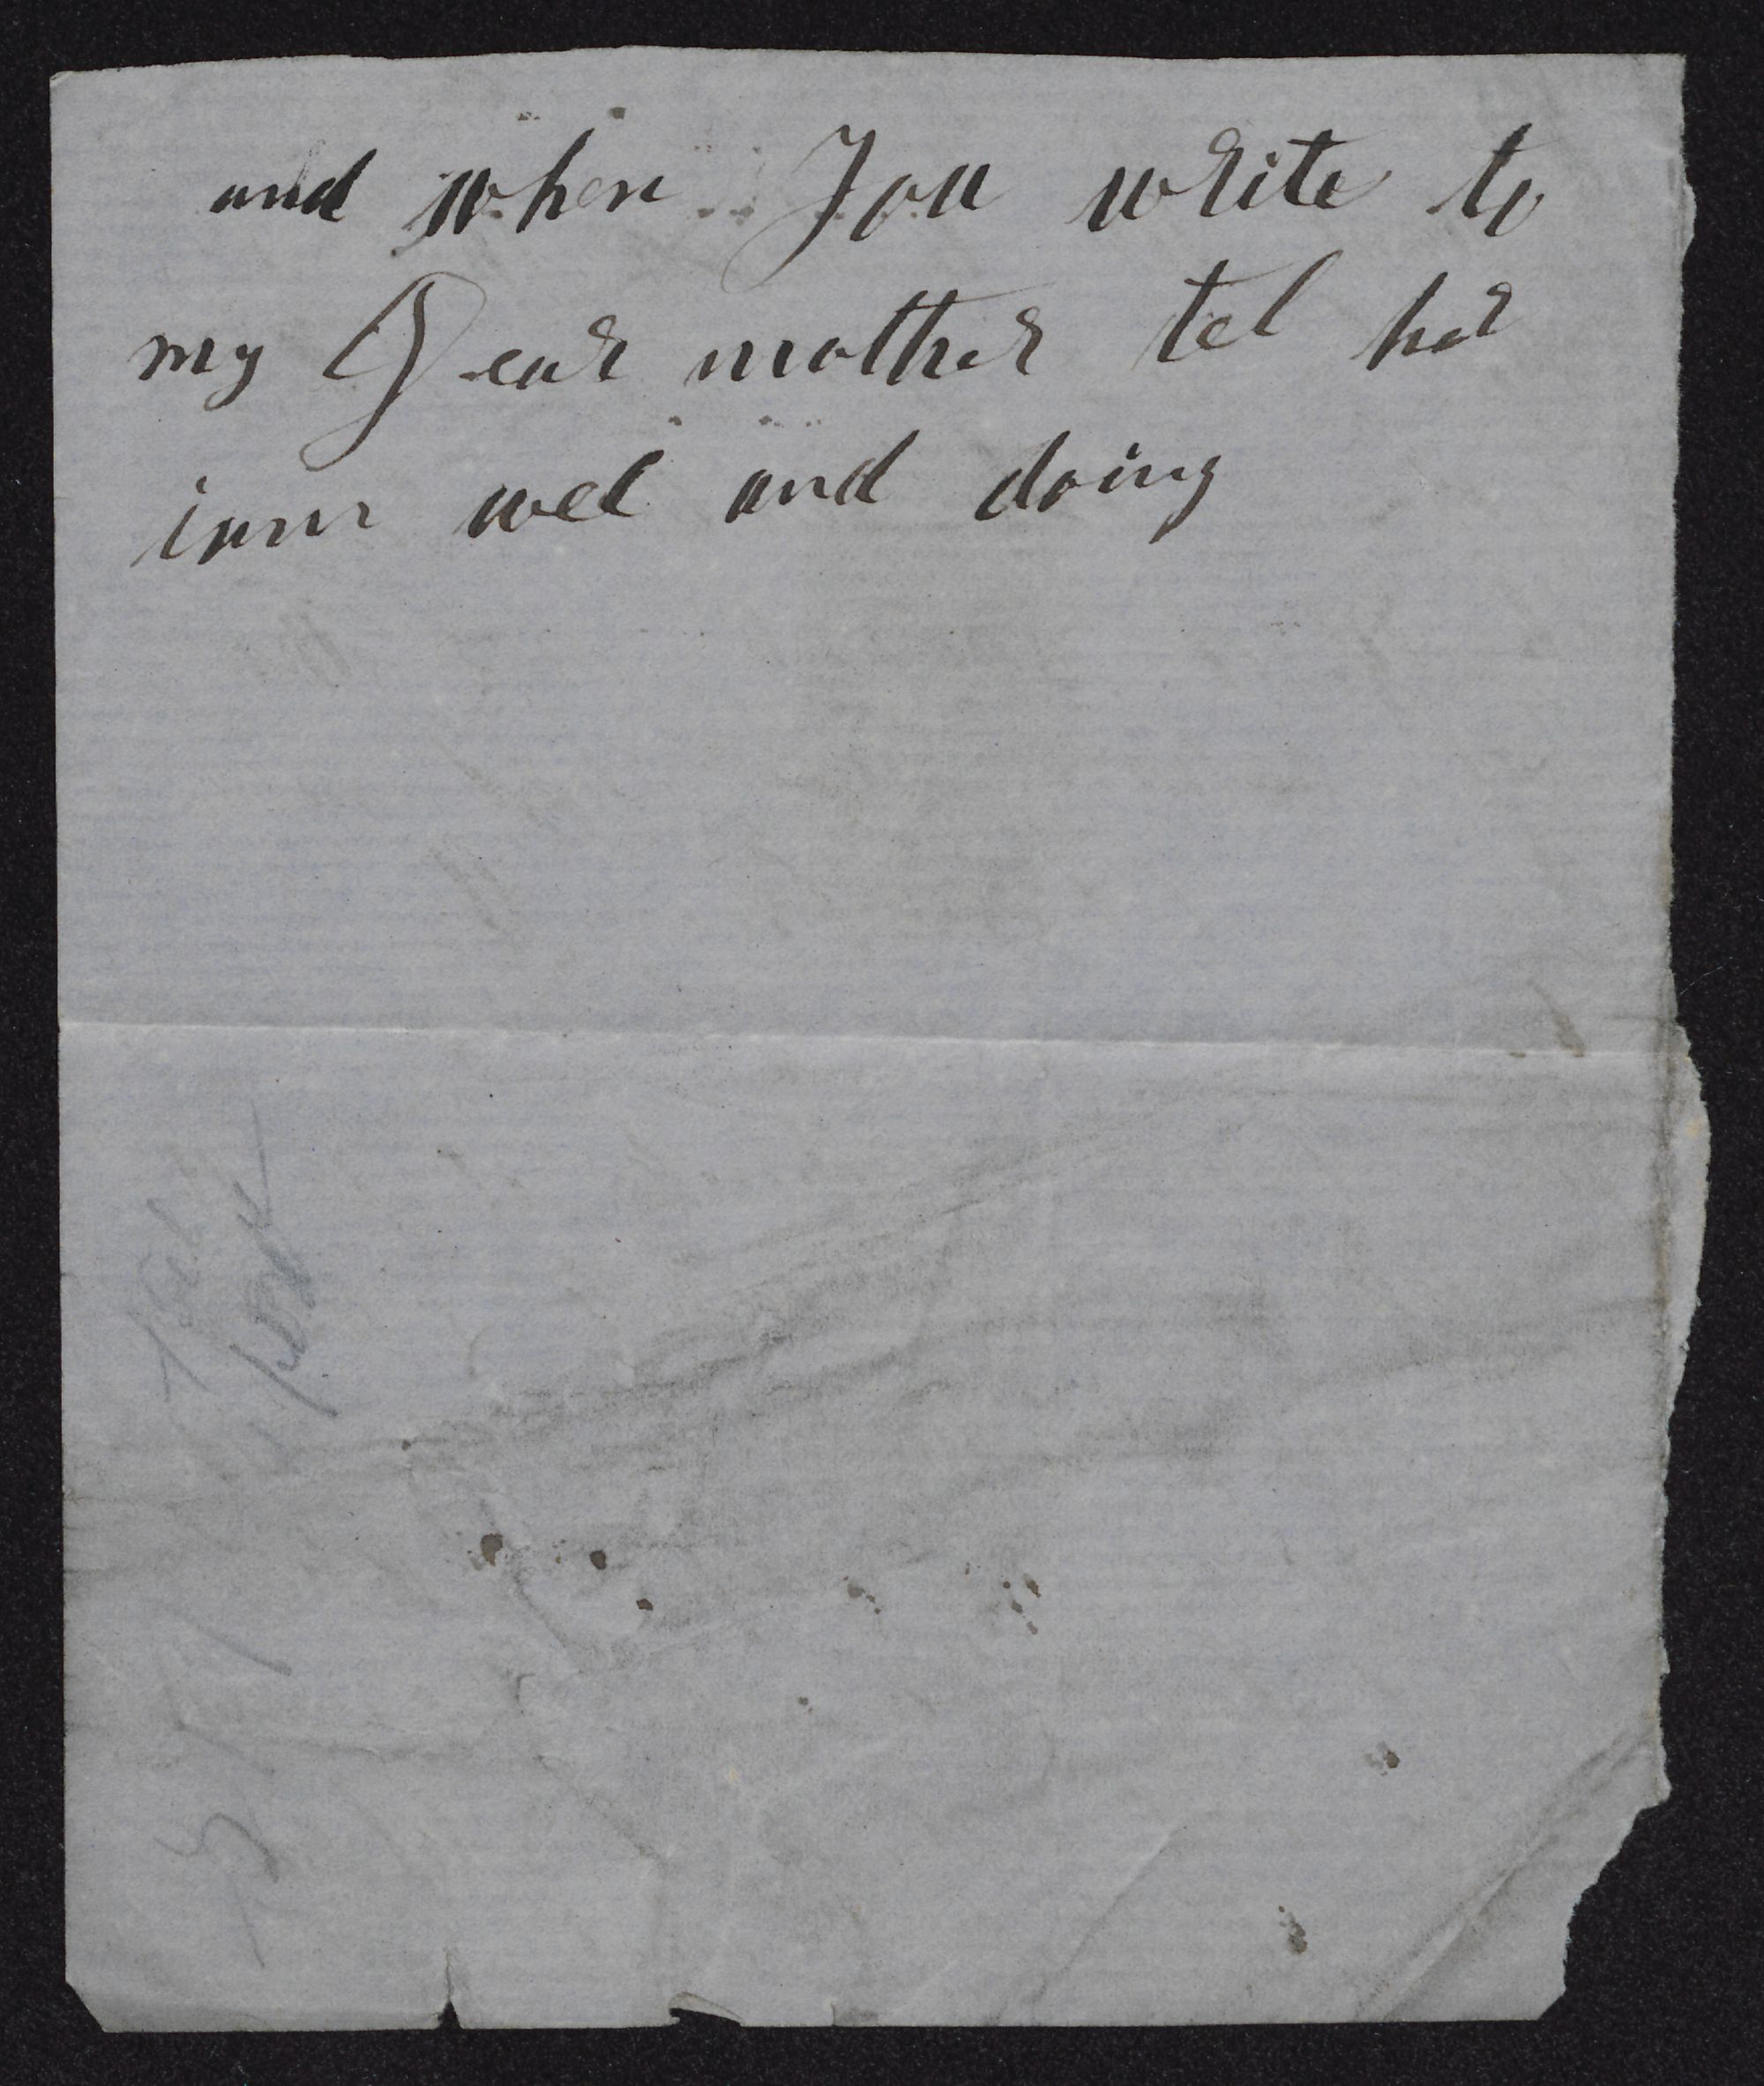 and when You write to
my Dear mother tel her
iam wel and doing